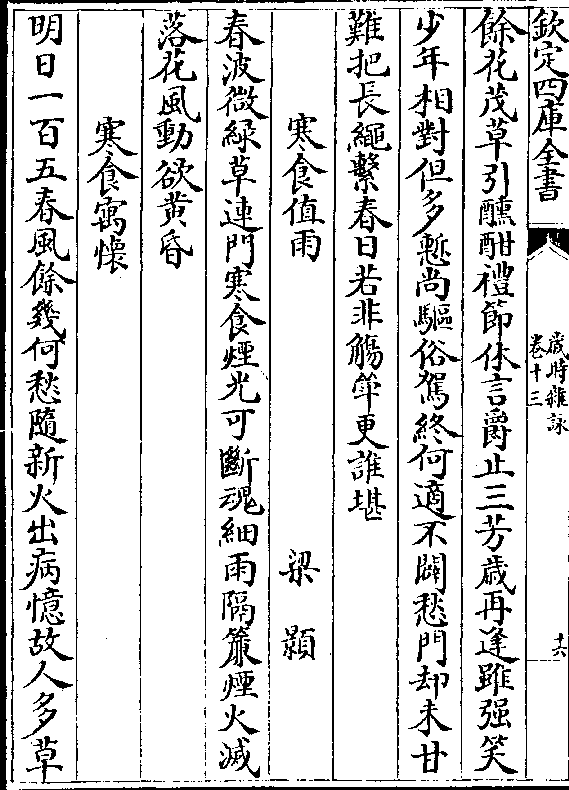 欽定四庫全書
歲時雜詠
卷十三
十六
餘花茂草引醺酣禮節休言爵止三芳歲再逢雖强笑
少年相對但多慙尚驅俗駕終何適不闢愁門却未甘
難把長繩繫春日若非觴斝更誰堪
寒食值雨 梁顥
春波微綠草連門寒食煙光可斷魂細雨隔簾煙火滅
落花風動欲黃昏
寒食寓懷
明日一百五春風餘幾何愁隨新火出病憶故人多草